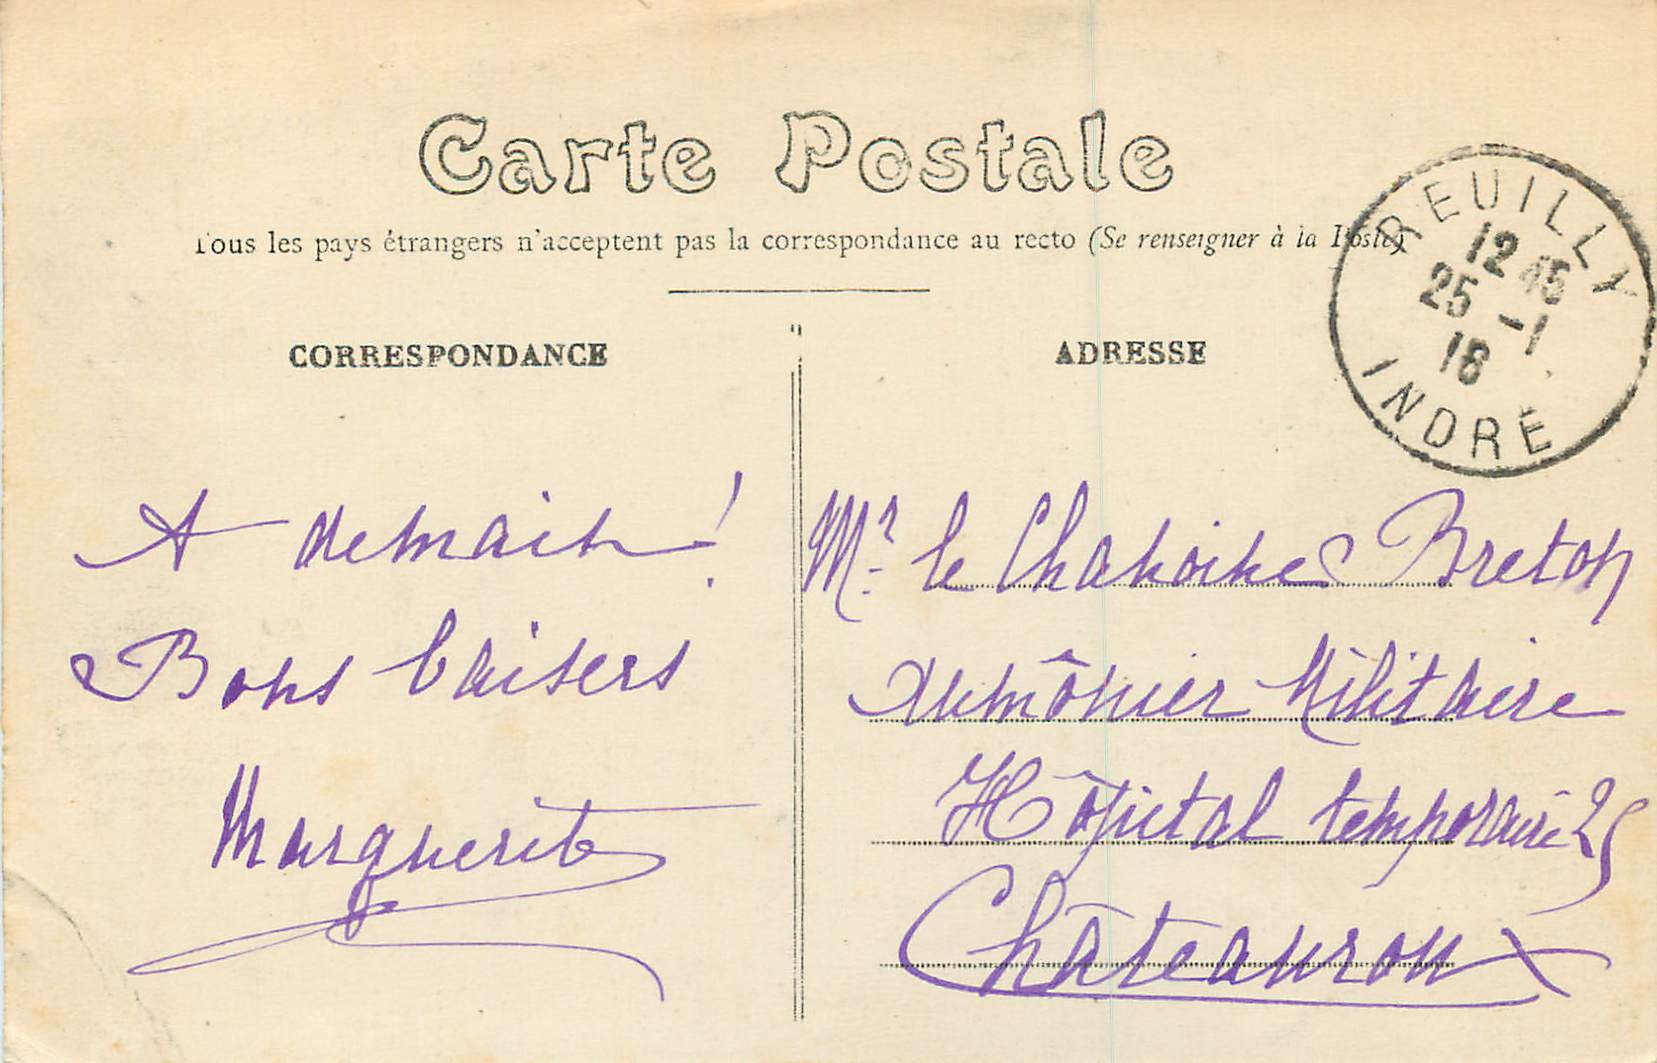 Carte Postale
Tous les pays étrangers n'acceptent pas la correspondance au recto (Se renseigner à la Poste)
REUILLY
12 45
25 -1
18
INDRE
CORRESPONDANCE
ADRESSE
A demain !
Bons baisers
Marguerite
Mr. le Chanoine Breton
Aumônier Militaire
Hôpital temporaire 25
Châteauroux